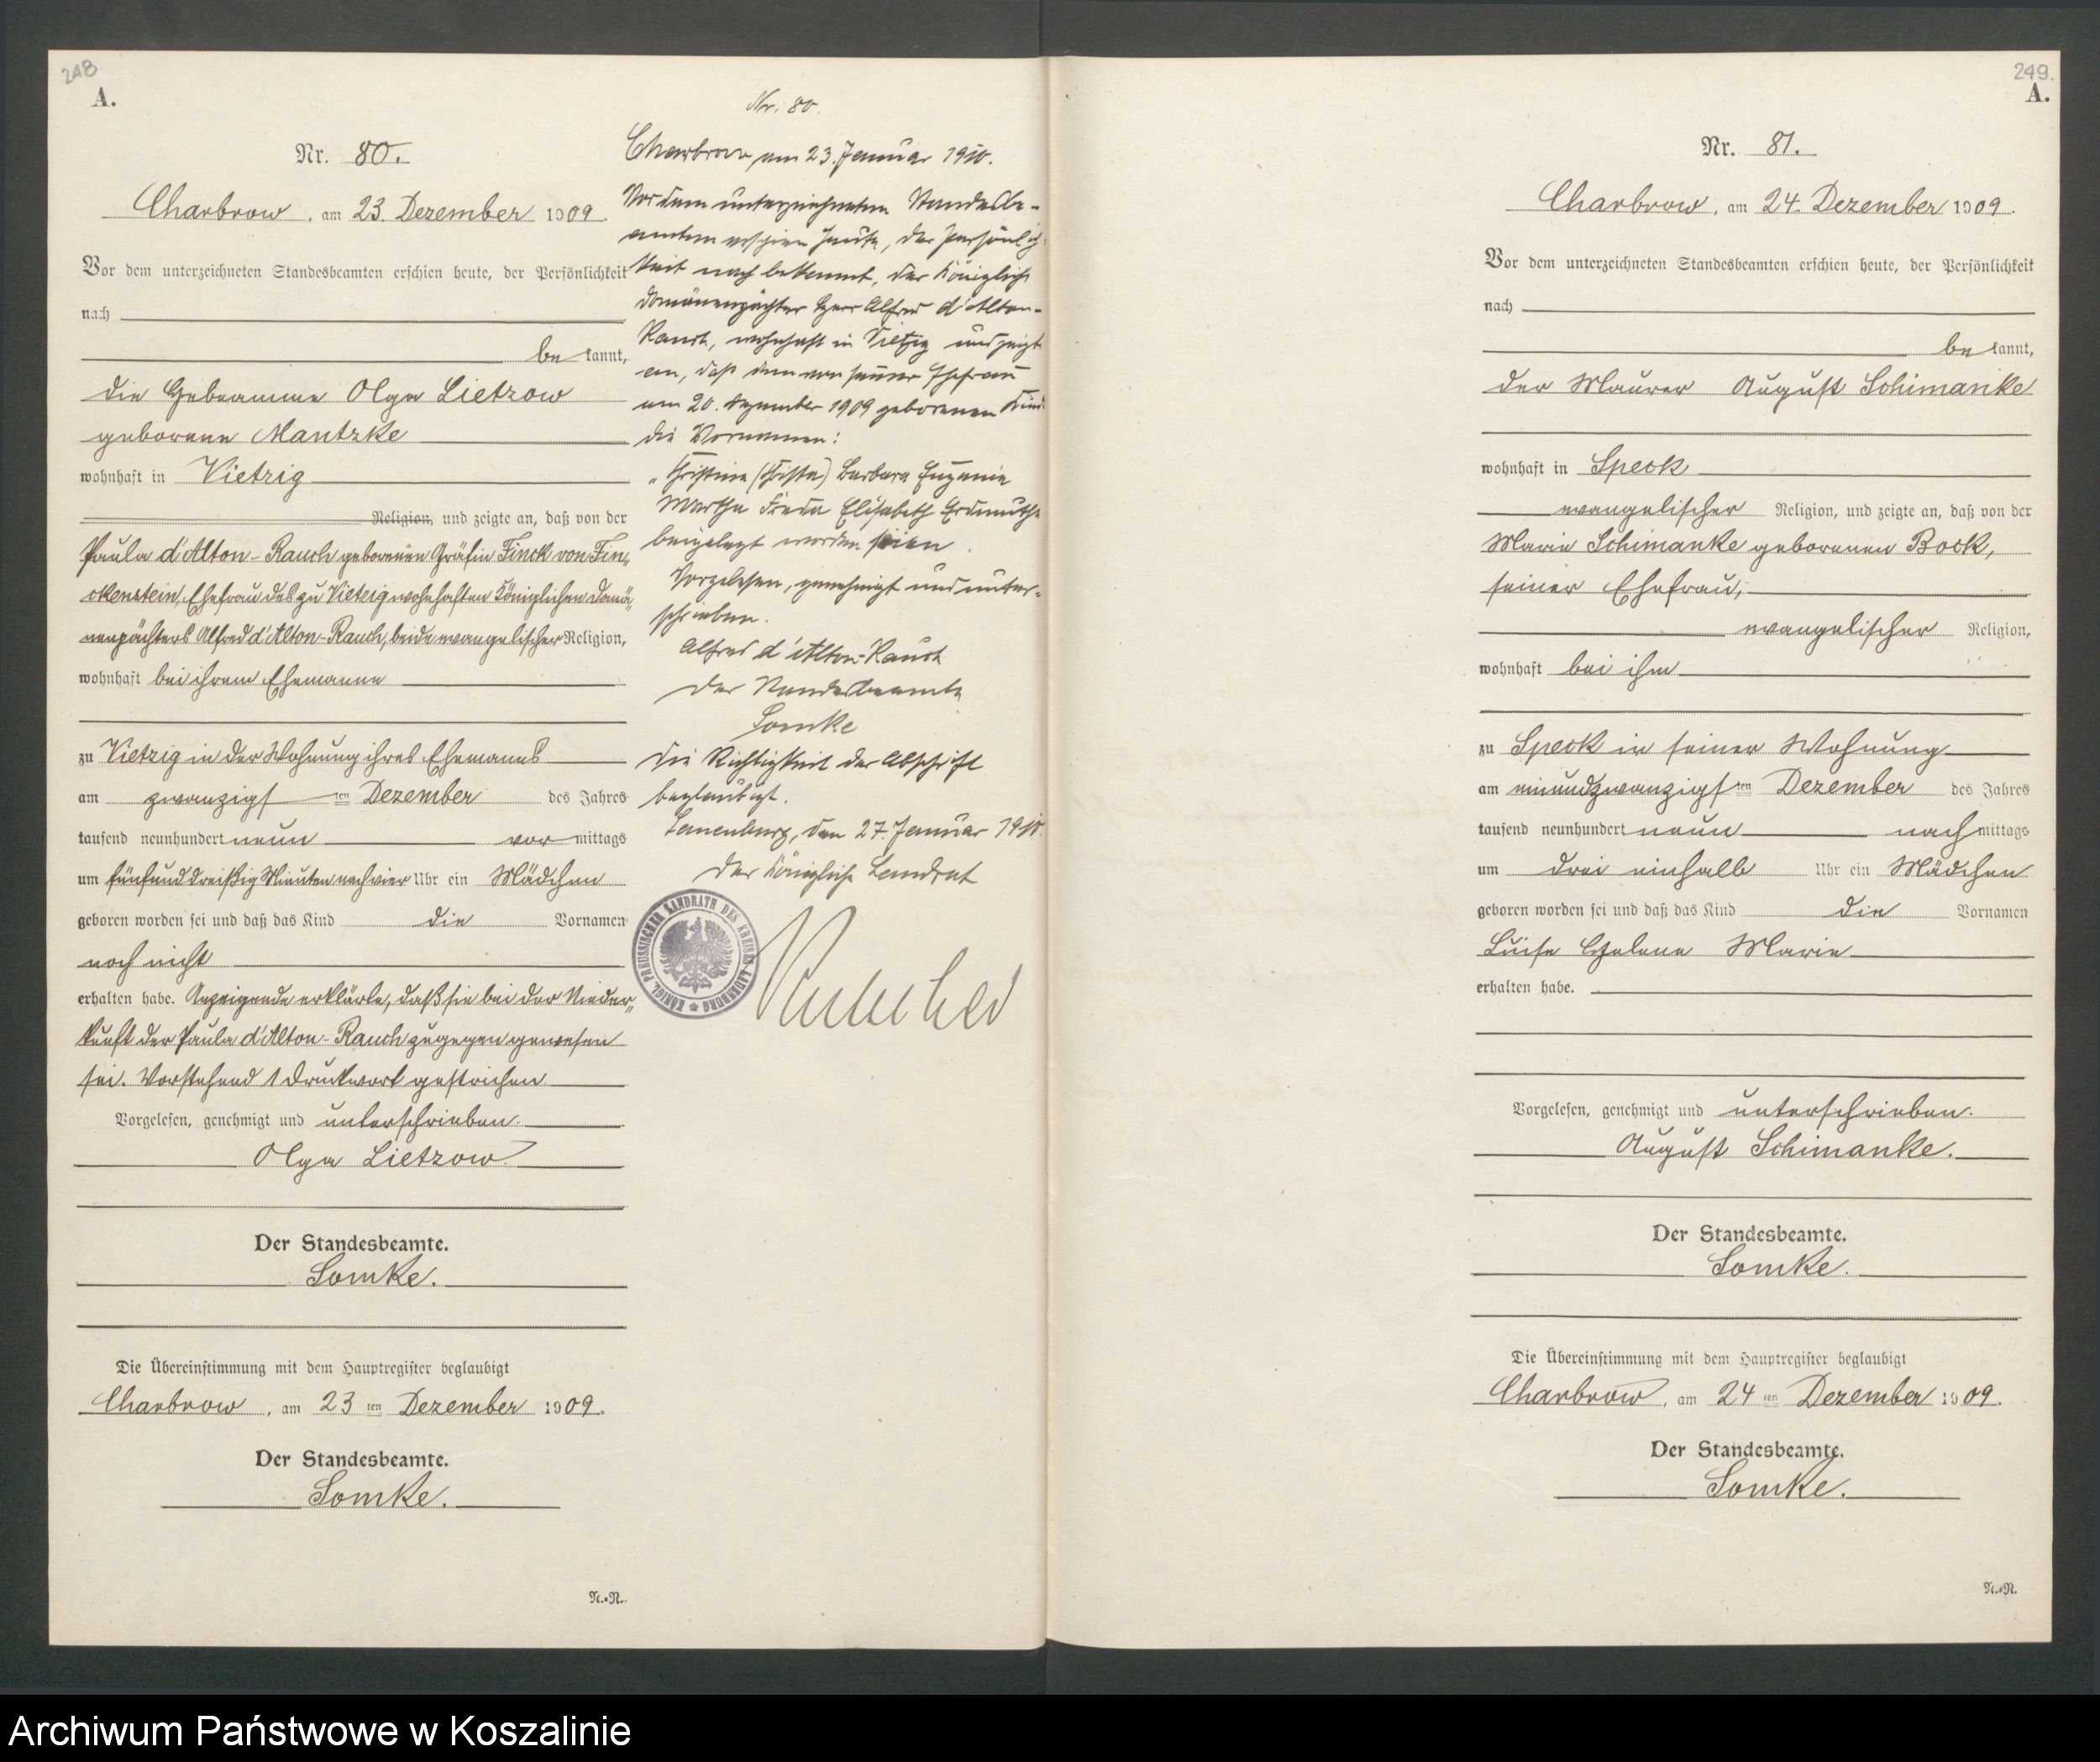 248
A.
Nr. 80.
Charbrow, am 23. Dezember 1909.
Vor dem unterzeichneten Standesbeamten erschien heute, der Persönlichkeit
nach
bekannt,
die Hebamme Olga Lietzow
geborene Mantzke
wohnhaft in Vietzig
Religion, und zeigte an, daß von der
Paula d'Alton-Rauch geborenen Gräfin Finck von Fin„
ckenstein, Ehefrau des zu Vietzig wohnhaften Königlichen Domä„
nenpächters Alfred d'Alton-Rauch, beide evangelischer Religion,
wohnhaft bei ihrem Ehemanne
zu Vietzig in der Wohnung ihres Ehemanns
am zwanzigsten Dezember des Jahres
tausend neunhundert neun vormittags
um fünfunddreißig Minuten nach vier Uhr ein Mädchen
geboren worden sei und daß das Kind die Vornamen
noch nicht
erhalten habe. Anzeigende erklärte, daß sie bei der Nieder„
kunft der Paula d'Alton-Rauch zugegen gewesen
sei. Vorstehend 1 Druckwort gestrichen.
Vorgelesen, genehmigt und unterschrieben.
Olga Lietzow
Der Standesbeamte.
Somke.
Die Übereinstimmung mit dem Hauptregister beglaubigt
Charbrow, am 23ten Dezember 1909.
Der Standesbeamte.
Somke.
N.-N.
Nr. 80.
Charbrow, am 23. Januar 1910.
Vor dem unterzeichneten Standesbe-
amten erschien heute, der Persönlich-
keit nach bekannt, der Königliche
Domänenpächter Herr Alfred d'Alton-
Rauch, wohnhaft in Vietzig und zeigte
an, daß dem von seiner Ehefrau
am 20. Dezember 1909 geborenen Kinde
die Vornamen:
„Christine (Christa) Barbara Eugenie
Martha Frieda Elisabeth Erdmuthe
beigelegt worden seien.
Vorgelesen, genehmigt und unter-
schrieben.
Alfred d'Alton-Rauch
Der Standesbeamte
Somke
Die Richtigkeit der Abschrift
beglaubigt.
Lauenburg, den 27. Januar 1910.
Der Königliche Landrat
KÖNIGL. PREUSSISCHER LANDRATH DES KREISES LAUENBURG
249.
A.
Nr. 81.
Charbrow, am 24. Dezember 1909.
Vor dem unterzeichneten Standesbeamten erschien heute, der Persönlichkeit
nach
bekannt,
der Maurer August Schimanke
wohnhaft in Speck
evangelischer Religion, und zeigte an, daß von der
Marie Schimanke geborenen Bock,
seiner Ehefrau,
evangelischer Religion,
wohnhaft bei ihm
zu Speck in seiner Wohnung
am einundzwanzigsten Dezember des Jahres
tausend neunhundert neun nachmittags
um drei einhalb Uhr ein Mädchen
geboren worden sei und daß das Kind die Vornamen
Luise Helene Marie
erhalten habe.
Vorgelesen, genehmigt und unterschrieben.
August Schimanke.
Der Standesbeamte.
Somke.
Die Übereinstimmung mit dem Hauptregister beglaubigt
Charbrow, am 24ten Dezember 1909.
Der Standesbeamte.
Somke.
N.-N.
Archiwum Państwowe w Koszalinie